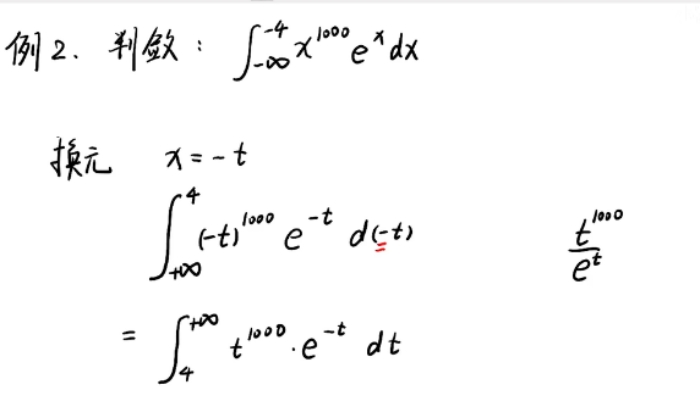 例2. 判敛: ∫_{-∞}^{-4} x^{1000} e^x dx
换元 x = -t
∫_{+∞}^{4} (-t)^{1000} e^{-t} d(-t)
t^{1000}/e^t
= ∫_{4}^{+∞} t^{1000} · e^{-t} dt